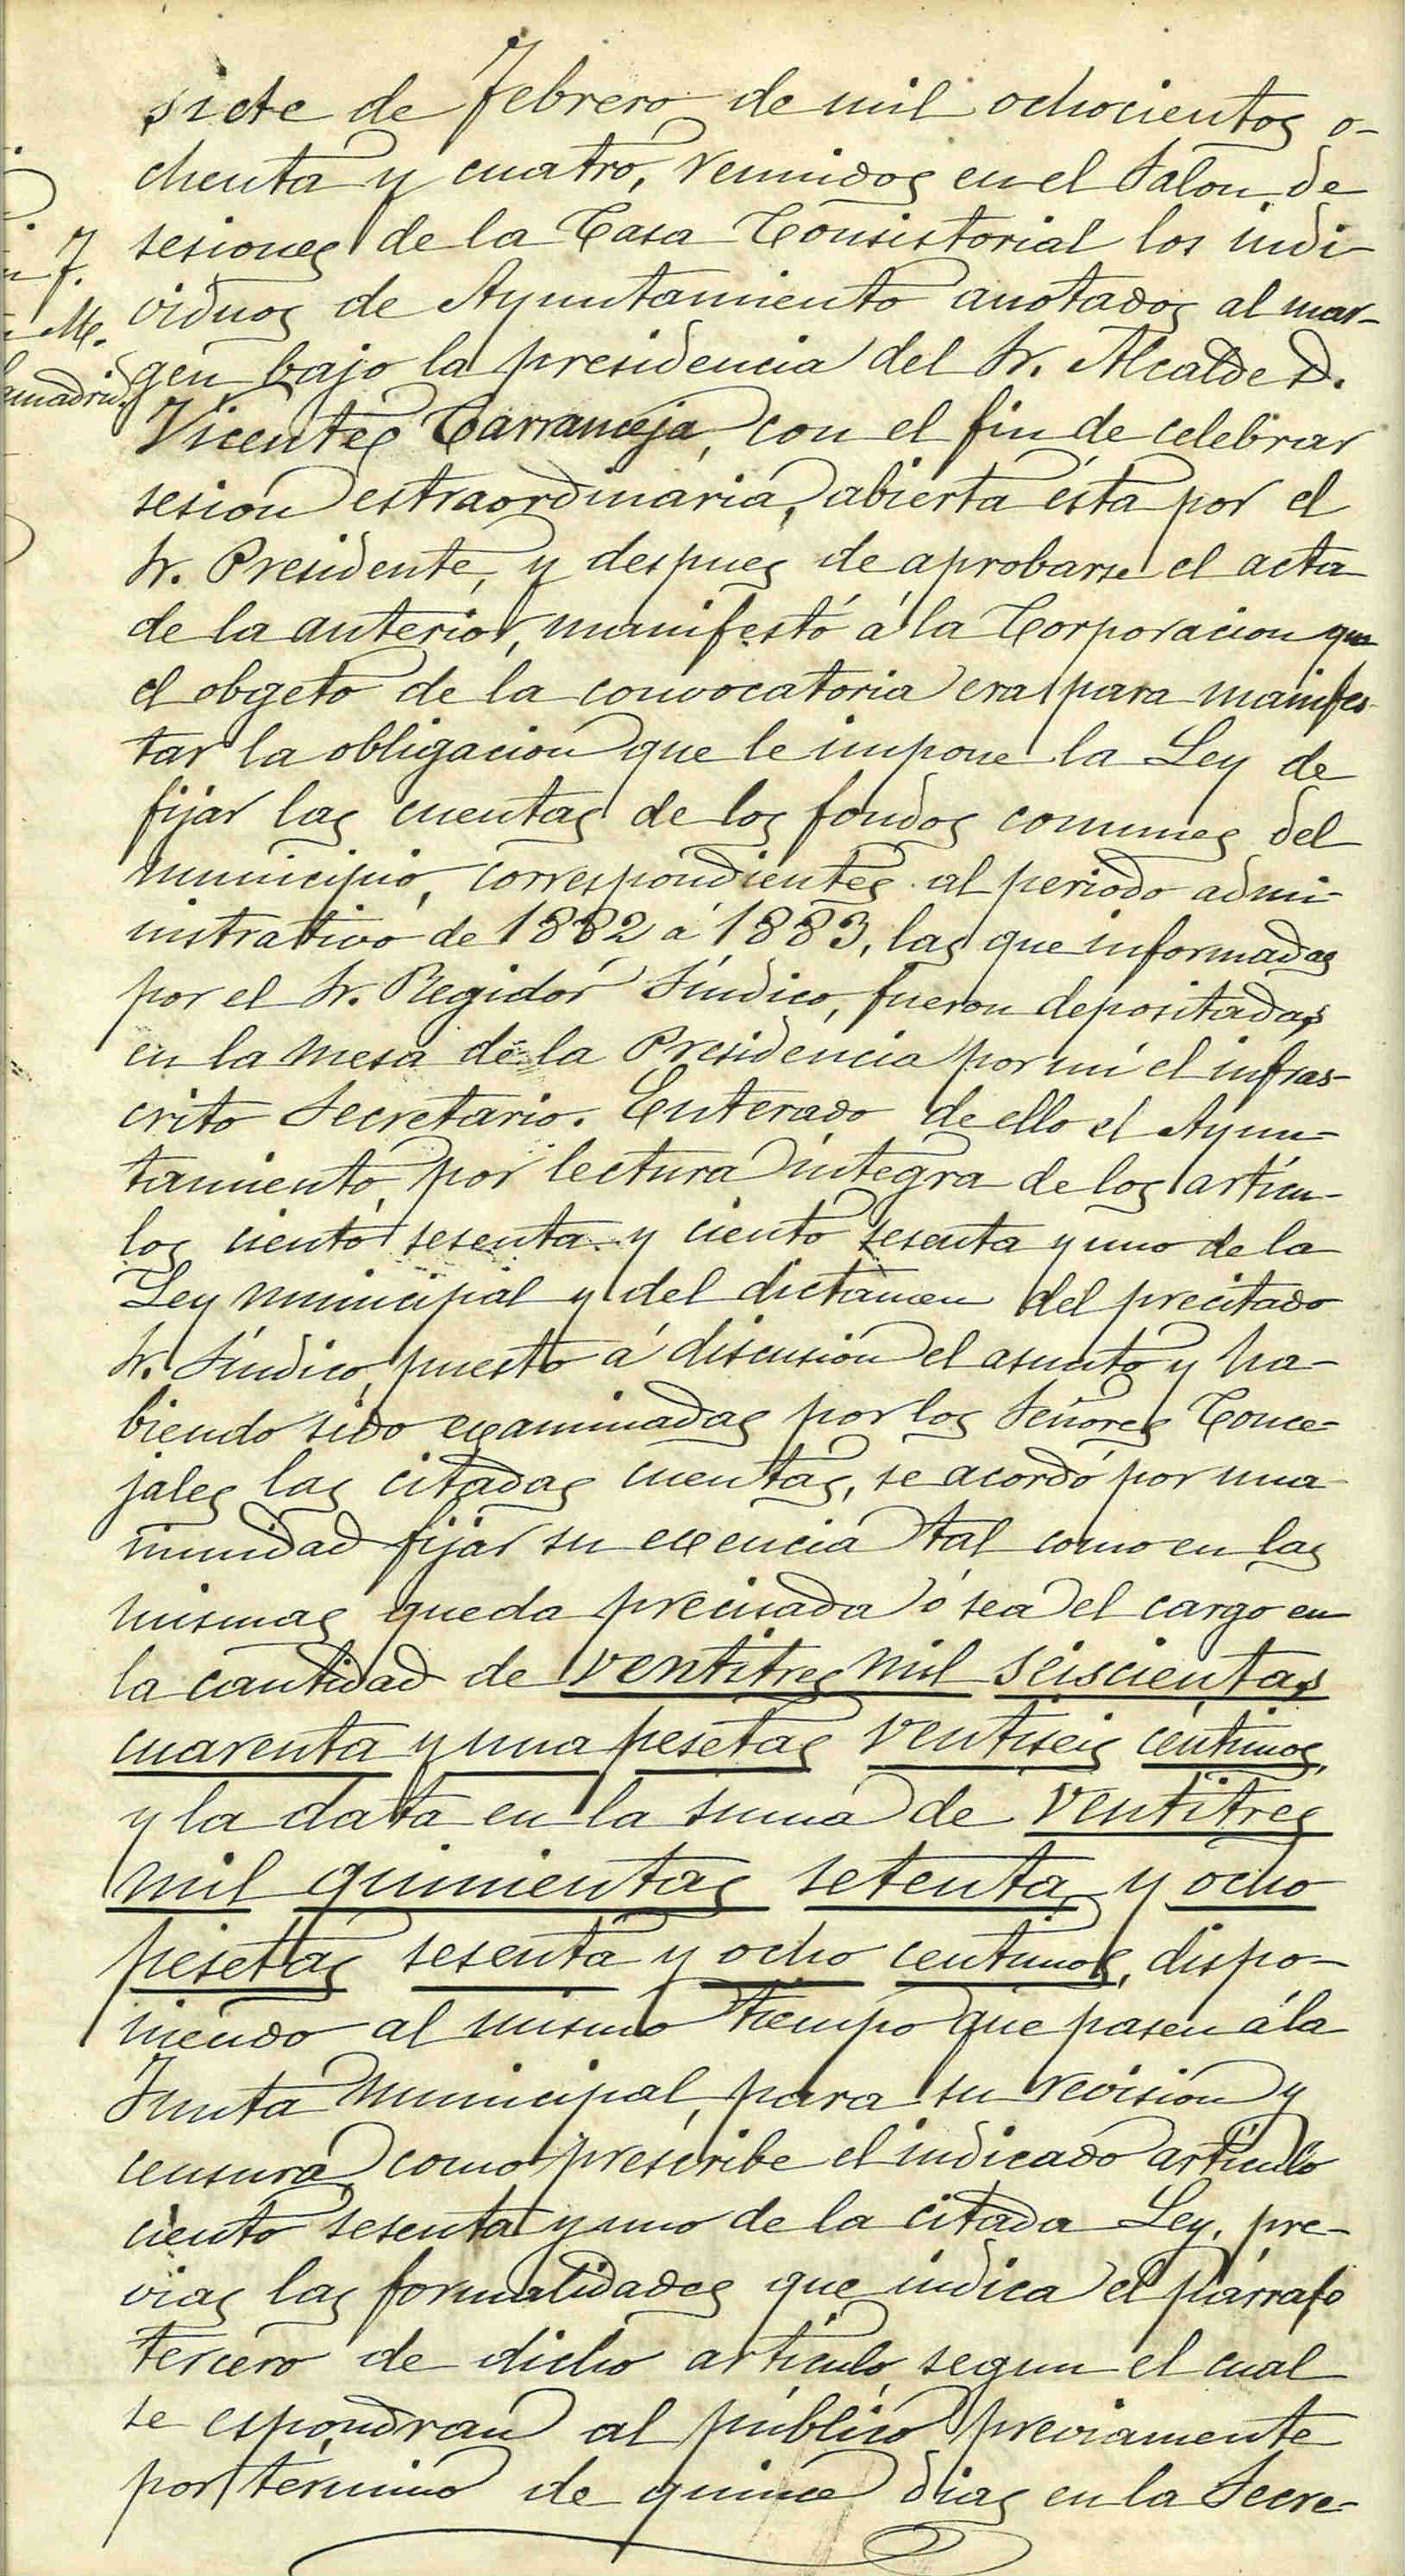 siete de Febrero de mil ochocientos o-
chenta y cuatro, reunidos en el Salon de
sesiones de la Casa Consistorial los indi-
J.
viduos de Ayuntamiento anotados al mar-
M.
gen bajo la presidencia del Sr. Alcalde D.
amadrid.
Vicente Carranceja, con el fin de celebrar
sesion estraordinaria, abierta ésta por el
Sr. Presidente, y despues de aprobarse el acta
de la anterior, manifestó á la Corporacion que
el obgeto de la convocatoria era para manifes-
tar la obligacion que le impone la Ley de
fijar las cuentas de los fondos comunes del
municipio, correspondientes al periodo admi-
nistrativo de 1882 á 1883, las que informadas
por el Sr. Regidor Síndico, fueron depositadas
en la mesa de la Presidencia por mí el infras-
crito Secretario. Enterado de ello el Ayun-
tamiento, por lectura íntegra de los artícu-
los ciento sesenta y ciento sesenta y uno de la
Ley municipal y del dictamen del precitado
Sr. Síndico, puesto á discusion el asunto y ha-
biendo sido examinadas por los Señores Conce-
jales las citadas cuentas, se acordó por una-
nimidad fijar su exencia tal como en las
mismas queda precisada ó sea el cargo en
la cantidad de ventitres mil seiscientas
cuarenta y una pesetas ventiseis céntimos,
y la data en la suma de ventitres
mil quinientas setenta y ocho
pesetas sesenta y ocho centimos, dispo-
niendo al mismo tiempo que pasen á la
Junta Municipal, para su revision y
censura como prescribe el indicado artículo
ciento sesenta y uno de la citada Ley, pre-
vias las formalidades que indica el párrafo
tercero de dicho artículo, segun el cual
se espondran al público previamente
por término de quince dias en la Secre-